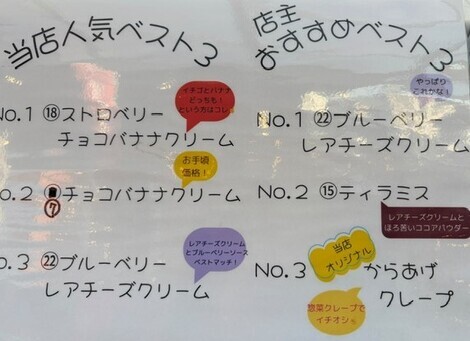 当店人気ベスト3
イチゴとバナナ
どっちも!
という方はコレ
No.1 ⑱ストロベリー
チョコバナナクリーム
お手頃
価格!
No.2 チョコバナナクリーム
⑦
レアチーズクリーム
とブルーベリーソース
ベストマッチ!
No.3 ㉒ブルーベリー
レアチーズクリーム
店主
おすすめベスト3
やっぱり
これかな!
No.1 ㉒ブルーベリー
レアチーズクリーム
No.2 ⑮ティラミス
レアチーズクリームと
ほろ苦いココアパウダー
当店
オリジナル
No.3 からあげ
クレープ
惣菜クレープで
イチオシ